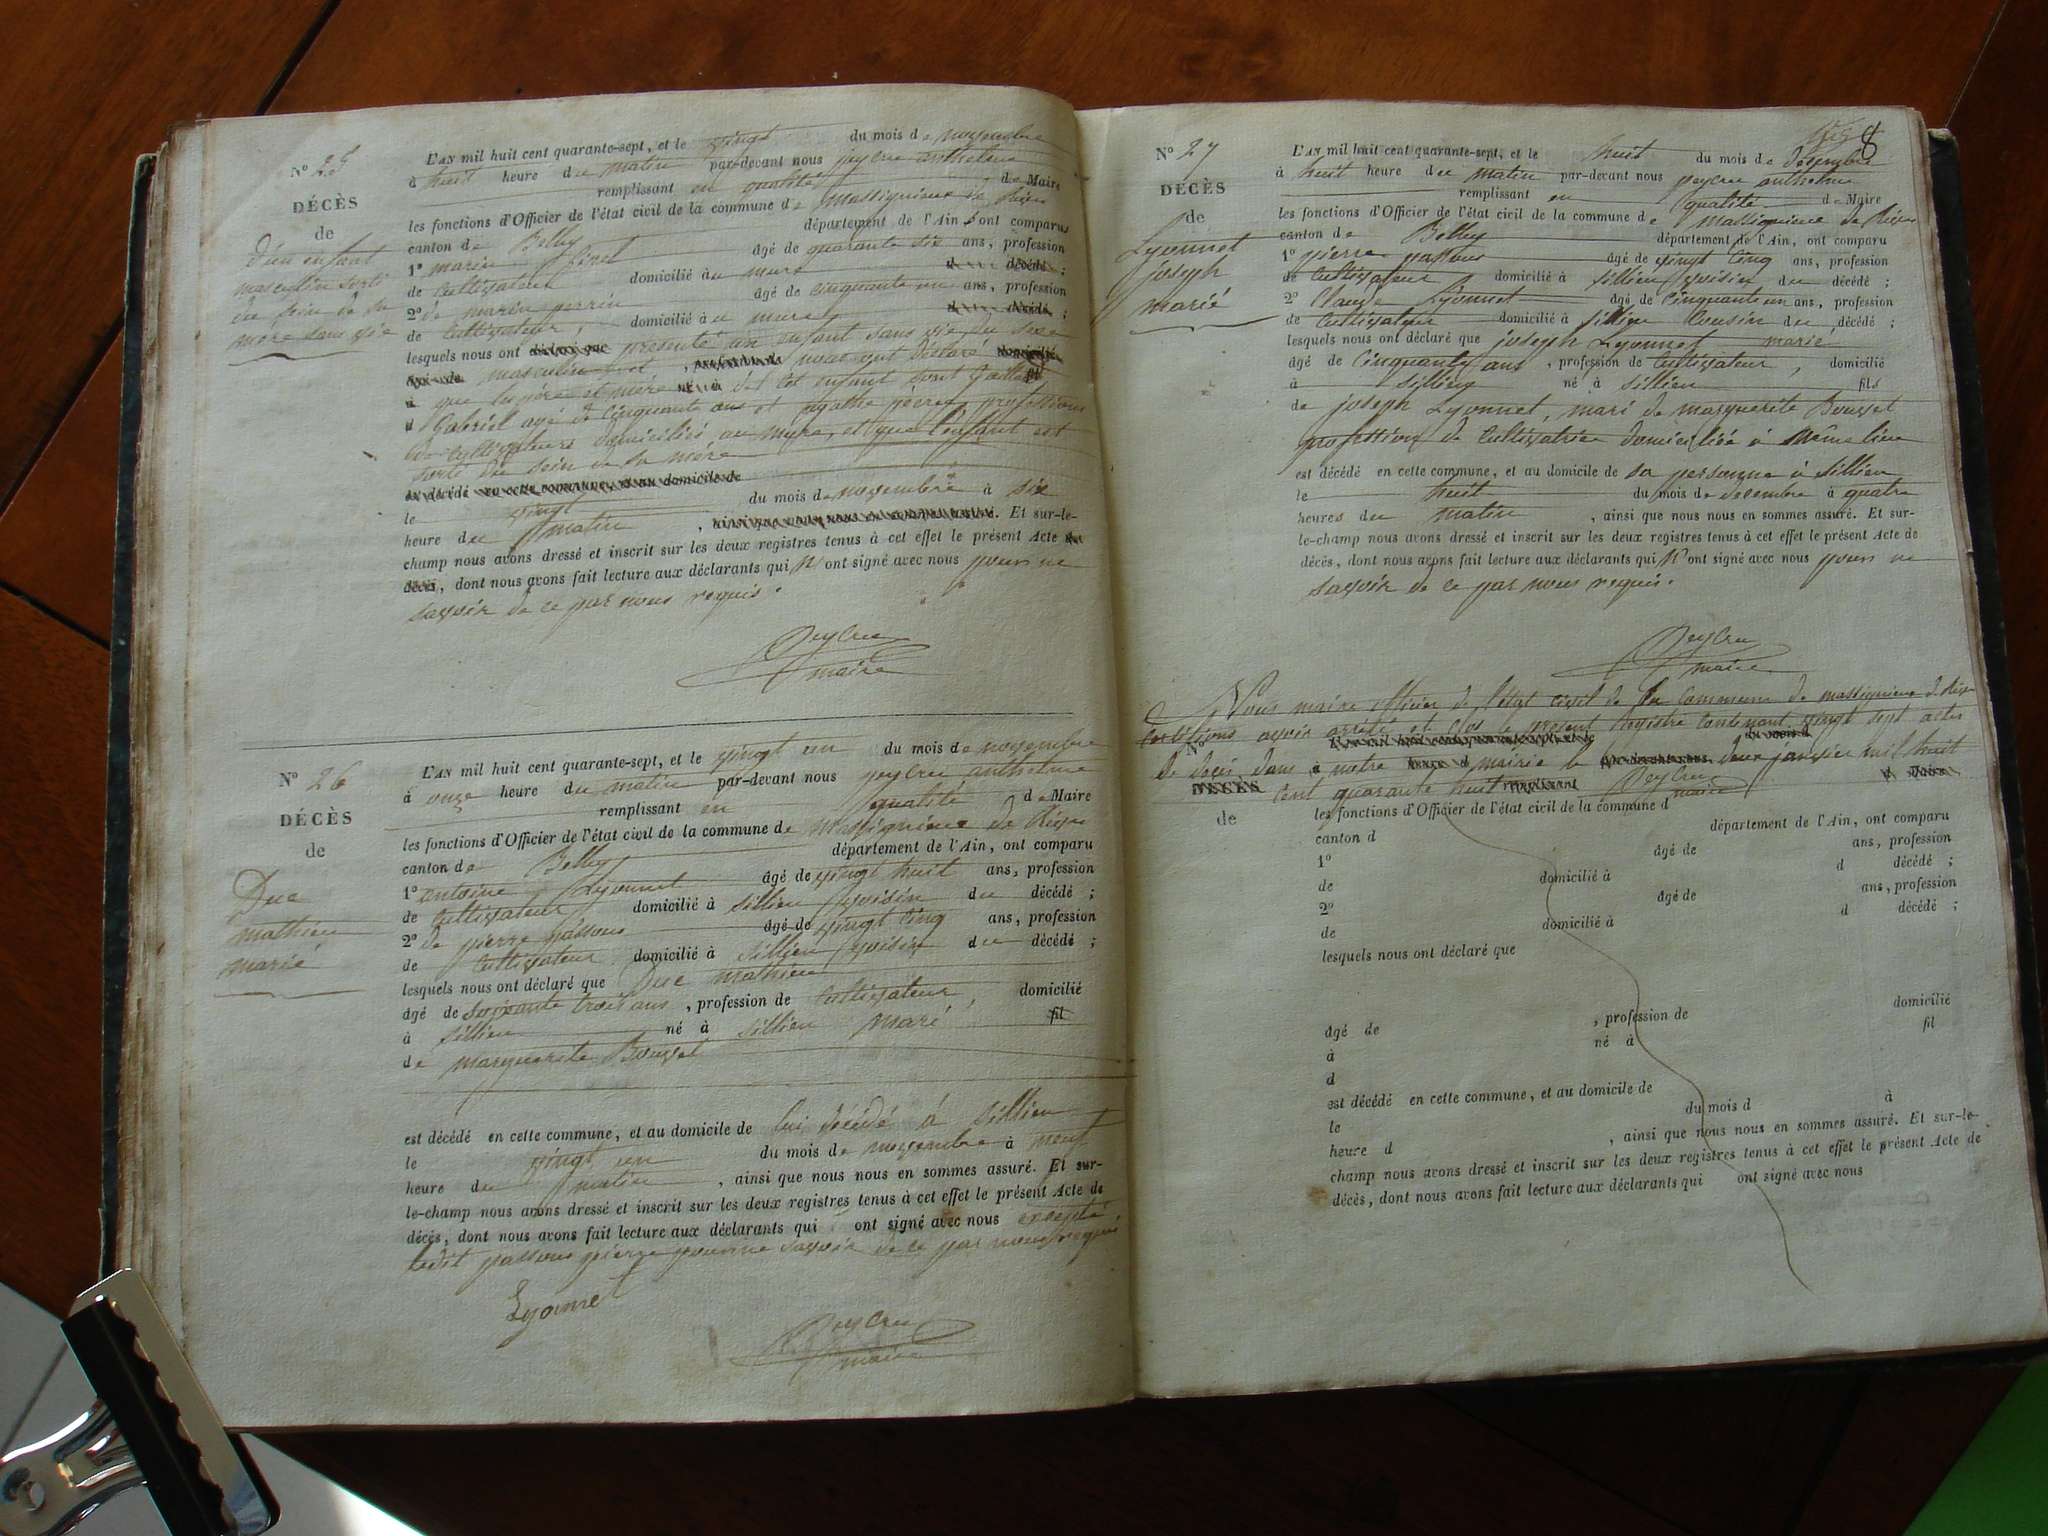 N° 25
DÉCÈS
de
d'un enfant
masculin sorti
du sein de sa
mère sans vie
L'AN mil huit cent quarante-sept, et le vingt du mois de novembre
à huit heure du matin par-devant nous peycru anthelme
remplissant en qualité de Maire
les fonctions d'Officier de l'état civil de la commune de massignieu de Rives
canton de Belley département de l'Ain, ont comparu
1° marin âgé de quarante six ans, profession
de cultivateur domicilié au mure
2° de marin perrin âgé de cinquante un ans, profession
de cultivateur, domicilié au mure
lesquels nous ont présenté un enfant sans vie du sexe
masculin et nous ont déclaré
que les père et mère de cet enfant sont
Gabriel agé de cinquante ans et agathe professions
de cultivateurs domiciliés au mure, et que l'enfant est
sorti du sein de sa mère
le vingt du mois de novembre à six
heure du matin, Et sur-le-
champ nous avons dressé et inscrit sur les deux registres tenus à cet effet le présent Acte
, dont nous avons fait lecture aux déclarants qui n'ont signé avec nous pour ne
savoir de ce par nous requis.
Peycru
maire
N° 26
DÉCÈS
de
Duc
mathieu
marié
L'AN mil huit cent quarante-sept, et le vingt un du mois de novembre
à onze heure du matin par-devant nous peycru anthelme
remplissant en qualité de Maire
les fonctions d'Officier de l'état civil de la commune de massignieu de Rives
canton de Belley département de l'Ain, ont comparu
1° antoine Lyonnet âgé de vingt huit ans, profession
de cultivateur domicilié à sillieu voisin du décédé ;
2° de pierre passous âgé de vingt cinq ans, profession
de cultivateur domicilié à sillieu voisin du décédé ;
lesquels nous ont déclaré que Duc mathieu
âgé de soixante trois ans, profession de cultivateur, domicilié
à sillieu né à sillieu mari fil
de marguerite Bousset
est décédé en cette commune, et au domicile de lui décédé à sillieu
le vingt un du mois de novembre à neuf
heure du matin, ainsi que nous nous en sommes assuré. Et sur-
le-champ nous avons dressé et inscrit sur les deux registres tenus à cet effet le présent Acte de
décès, dont nous avons fait lecture aux déclarants qui ont signé avec nous excepté
ledit passous pierre pour ne savoir de ce par nous requis
Lyonnet
Peycru
maire
8
N° 27
DÉCÈS
de
Lyonnet
joseph
marié
L'AN mil huit cent quarante-sept, et le huit du mois de décembre
à huit heure du matin par-devant nous peycru anthelme
remplissant en qualité de Maire
les fonctions d'Officier de l'état civil de la commune de massignieu de Rives
canton de Belley département de l'Ain, ont comparu
1° pierre passous âgé de vingt cinq ans, profession
de cultivateur domicilié à sillieu voisin du décédé ;
2° Claude Lyonnet âgé de cinquante un ans, profession
de cultivateur domicilié à sillieu cousin du décédé ;
lesquels nous ont déclaré que joseph Lyonnet marié
âgé de cinquante ans, profession de cultivateur, domicilié
à sillieu né à sillieu fils
de joseph Lyonnet, mari de marguerite Bousset
profession de cultivatrice domiciliée à même lieu
est décédé en cette commune, et au domicile de sa personne à sillieu
le huit du mois de decembre à quatre
heures du matin, ainsi que nous nous en sommes assuré. Et sur-
le-champ nous avons dressé et inscrit sur les deux registres tenus à cet effet le présent Acte de
décès, dont nous avons fait lecture aux déclarants qui n'ont signé avec nous pour ne
savoir de ce par nous requis.
Peycru
maire
Nous maire officier de l'état civil de la commune de massignieu de Rives
certifions avoir arrêté et clos le présent registre contenant vingt sept actes
N°
de décès dans notre mairie le deux janvier mil huit
DÉCÈS
cent quarante huit Peycru
maire
de
les fonctions d'Officier de l'état civil de la commune d
canton d département de l'Ain, ont comparu
1° âgé de ans, profession
de domicilié à d décédé ;
2° âgé de ans, profession
de domicilié à d décédé ;
lesquels nous ont déclaré que
âgé de , profession de domicilié
à né à fil
d
est décédé en cette commune, et au domicile de
le du mois d à
heure d , ainsi que nous nous en sommes assuré. Et sur-le-
champ nous avons dressé et inscrit sur les deux registres tenus à cet effet le présent Acte de
décès, dont nous avons fait lecture aux déclarants qui ont signé avec nous